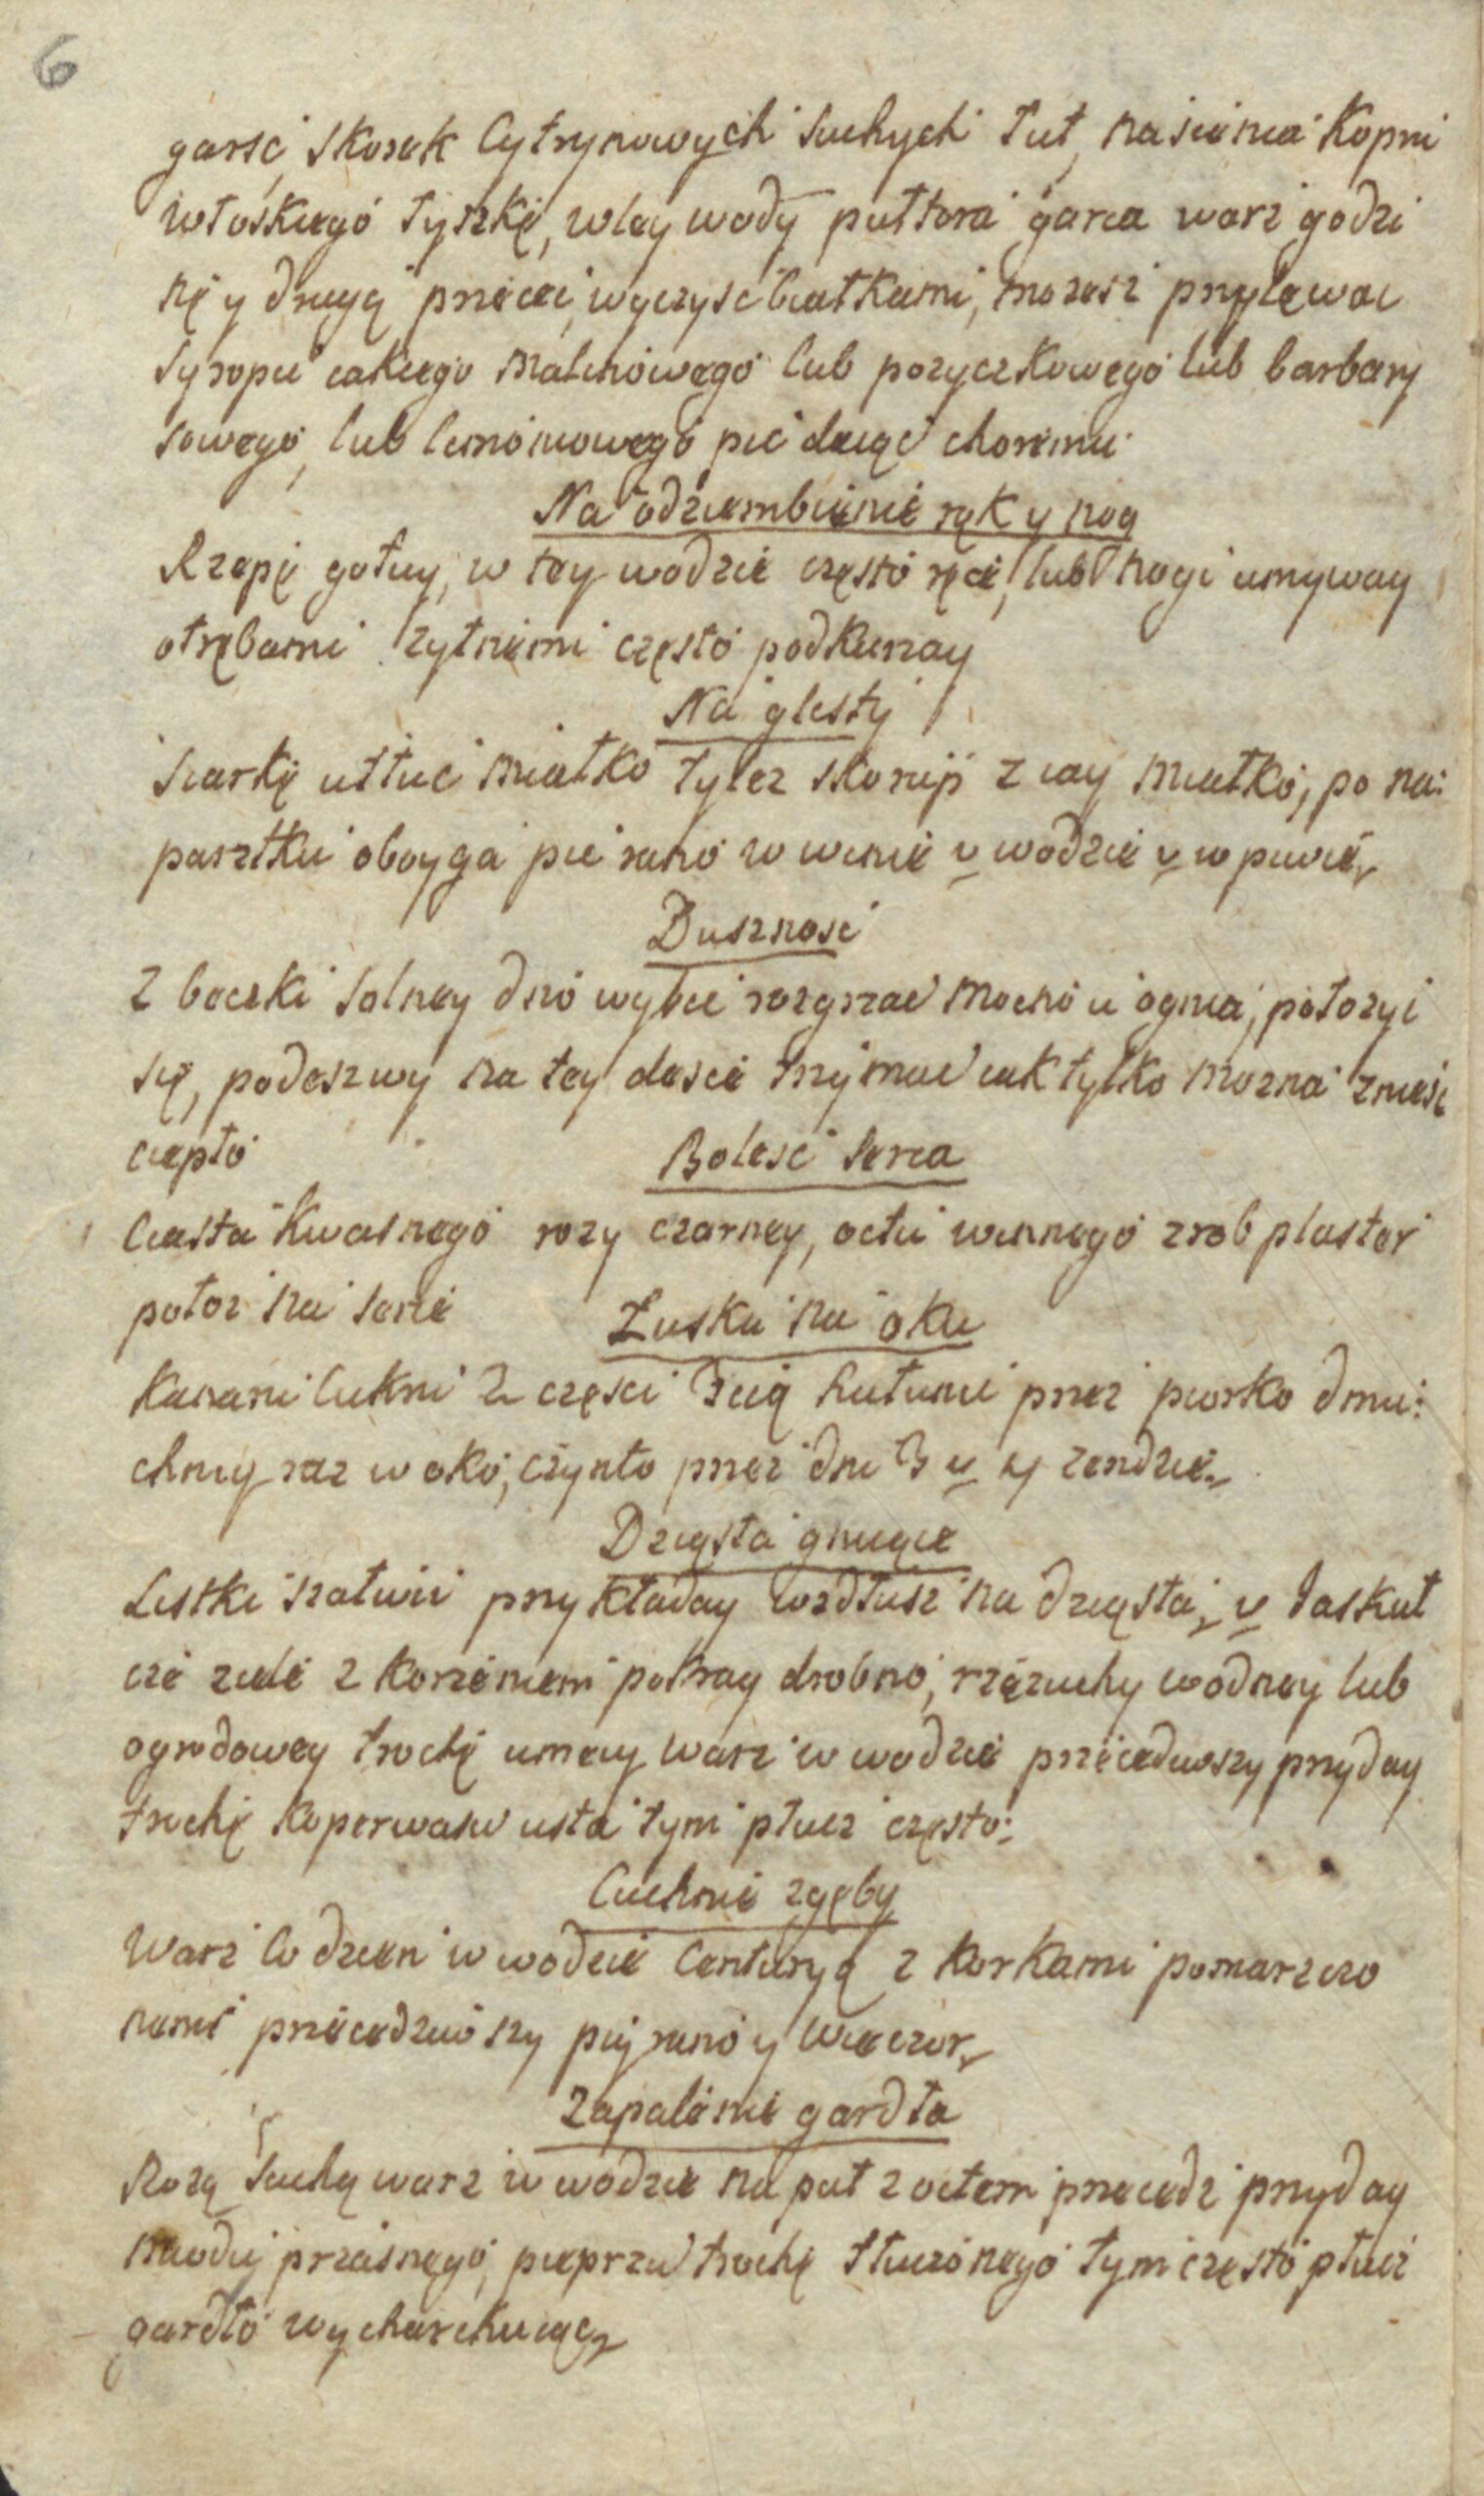 6
garsc, skorek Cytrynowych suchych łut, nasienia kopru
włoskiego łyszkę, wley wody pułtora garca warz godzi
nę y drugą przecec, wyczysc białkami, mozesz przylewac
syropu iakiego malinowego lub pozyczkowego lub barbary
sowego, lub limoniowego pic daiąc choremu
Na odziembienie rąk y nog
Rzepę gotuy, w tey wodzie często ręce, lub nogi umyway
otrębami żytniemi często podkurzay
Na glisty
Siarkę utłuc miałko tylez skorup z iay miałko, po na:
parstku oboyga pic rano w winie v wodzie v w piwie
Duszność
Z beczki solney dno wybic rozgrzac mocno u ognia, połozyc
się, podeszwy na tey desce trzymac iak tylko mozna zniesc
ciepło
Bolesc serca
Ciasta kwasnego rozy czarney, octu winnego zrob plaster
połoz na serce
Łuska na oku
Kanaru Cukru 2 części 3cią hutunu przez piorko dmu:
chniy raz w oko, czyn to przez dni 3 v 4 zendzie
Dziąsła gniiące
Listki szałwii przykładay wzdłusz na dziąsła, v Jaskuł
cze ziele z korzeniem pokray drobno, rzezuchy wodney lub
ogrodowey trochę umyy warz w wodzie przecedziwszy przyday
trochę koperwasu usta tym płucz często:
Cuchnie z gęby
Warz co dzien w wodzie Centuryą z korkami pomarzczo
nemi przecedziwszy piy rano y wieczor
Zapalenie gardła
Rozą suchą warz w wodzie na puł z octem przecedz przyday
miodu przasnego, pieprzu trochę tłuczonego tym często płucz
gardło wycharchuiąc